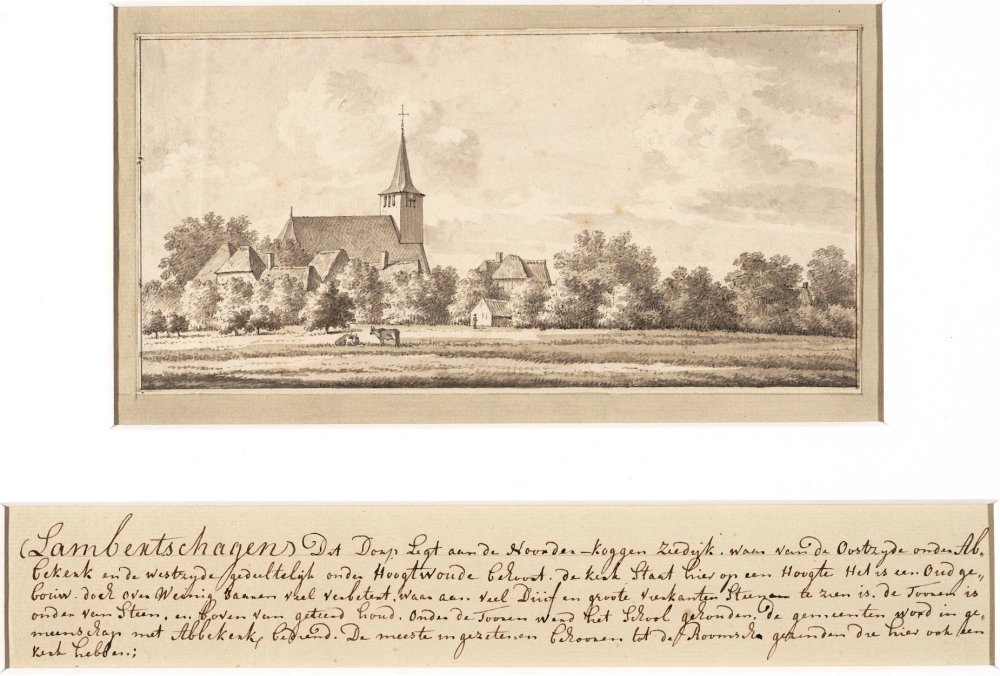 (Lambertschagen) Dit Dorp Legt aan de Noorder-Koggen Zeedijk. waar van de Oostzyde onder Ab-
bekerk en de Westzyde gedeeltelijk onder Hoogtwoude behoort. de kerk Staat hier op een Hoogte Het is een Oud ge-
bouw. doch over Weinig Jaaren veel verbetert. waar aan veel Duif en groote Vierkanten Steenen te zien is. de Tooren is
onder van Steen, en boven van geteerd houd. Onder de Tooren werd het School gehouden. de gemeenten word in ge-
meenschap met Abbekerk bediend. De meeste ingezetenen behooren tot de Roomsche gezinden die hier ook een
kerk hebben;